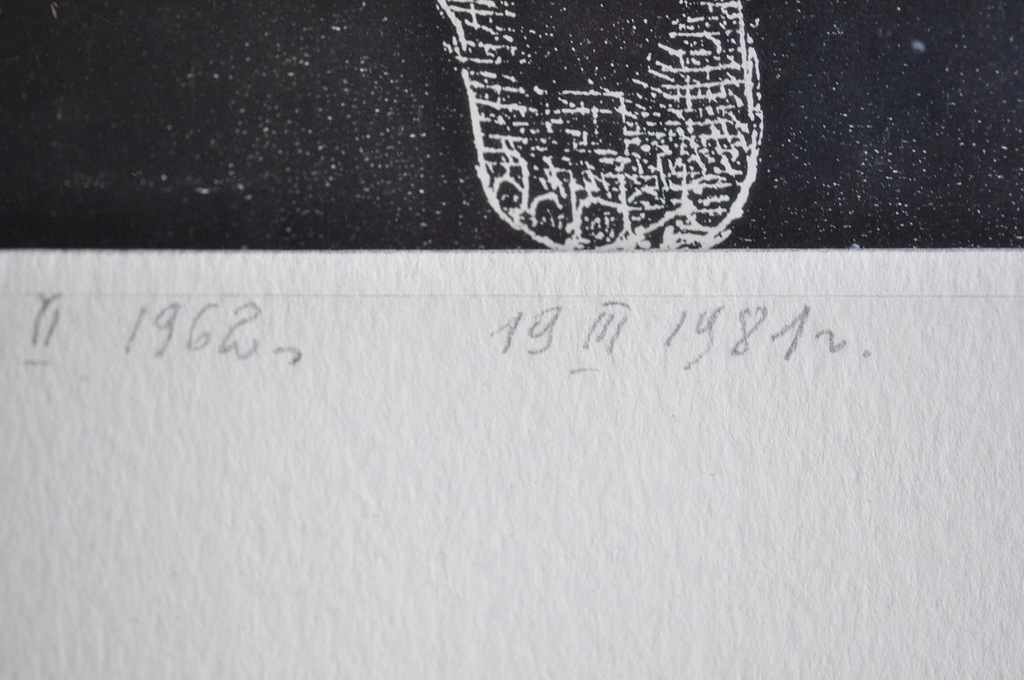 II 1962r. 19 III 1981r.